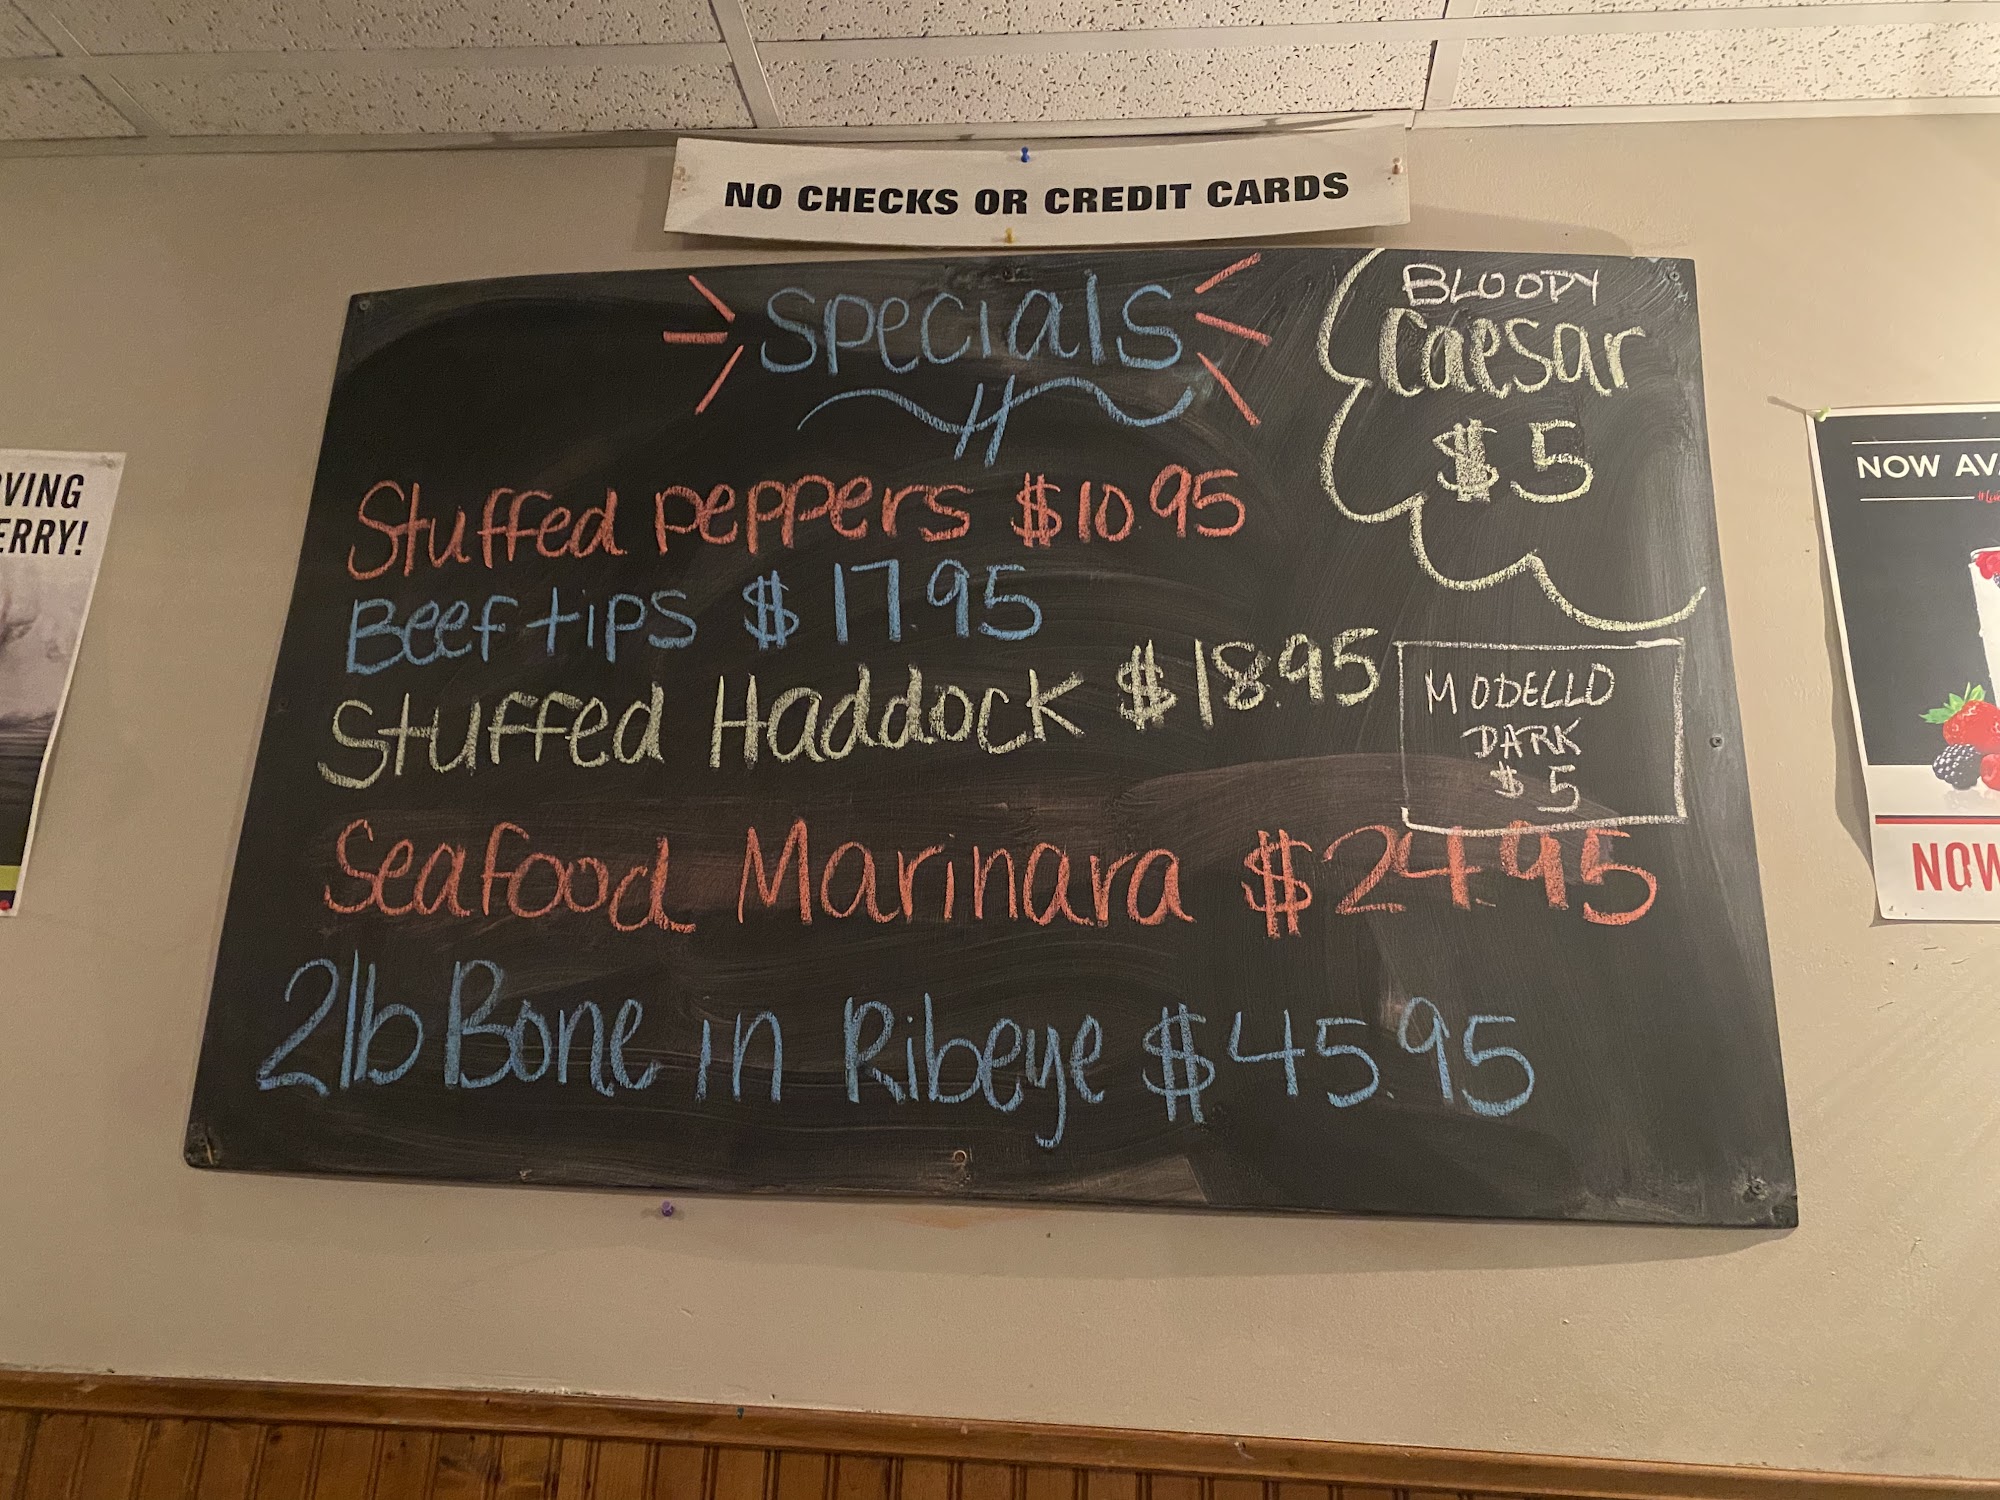 NO CHECKS OR CREDIT CARDS
Specials
Stuffed Peppers $10 95
Beef tips $17.95
Stuffed Haddock $18.95
Seafood Marinara $24.95
2lb Bone in Ribeye $45.95
BLOODY
Caesar
$5
MODELLO
DARK
$5
VING
ERRY!
NOW AV
NOW